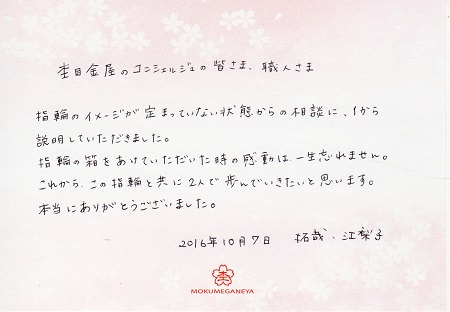 杢目金屋のコンシェルジュの皆さま、職人さま
指輪のイメージが定まっていない状態からの相談に、1から
説明していただきました。
指輪の箱をあけていただいた時の感動は、一生忘れません。
これから、この指輪と共に2人で歩んでいきたいと思います。
本当にありがとうございました。
2016年10月7日 拓哉・江梨子
杢
MOKUMEGANEYA